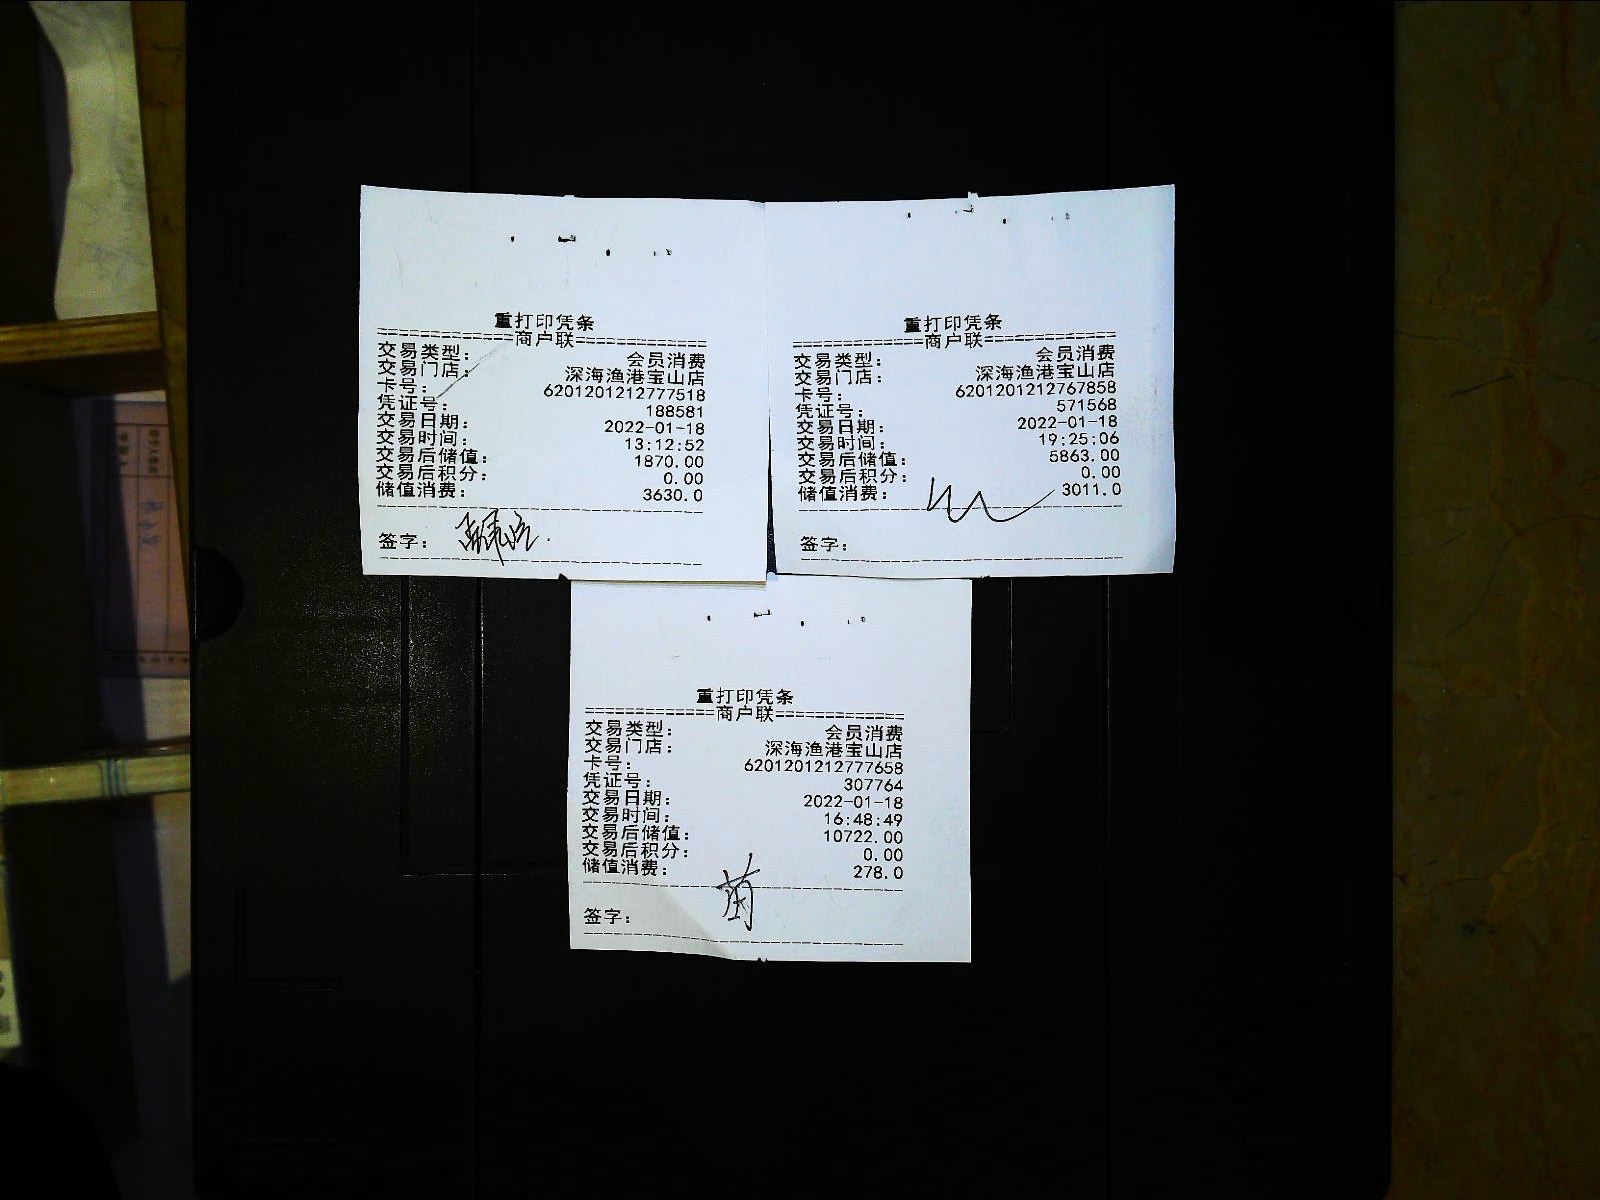 重打印凭条
=============商户联=============
交易类型： 会员消费
交易门店： 深海渔港宝山店
卡号： 6201201212777518
凭证号： 188581
交易日期： 2022-01-18
交易时间： 13:12:52
交易后储值： 1870.00
交易后积分： 0.00
储值消费： 3630.0
签字：
重打印凭条
=============商户联=============
交易类型： 会员消费
交易门店： 深海渔港宝山店
卡号： 6201201212767858
凭证号： 571568
交易日期： 2022-01-18
交易时间： 19:25:06
交易后储值： 5863.00
交易后积分： 0.00
储值消费： 3011.0
签字：
重打印凭条
=============商户联=============
交易类型： 会员消费
交易门店： 深海渔港宝山店
卡号： 6201201212777658
凭证号： 307764
交易日期： 2022-01-18
交易时间： 16:48:49
交易后储值： 10722.00
交易后积分： 0.00
储值消费： 278.0
签字：